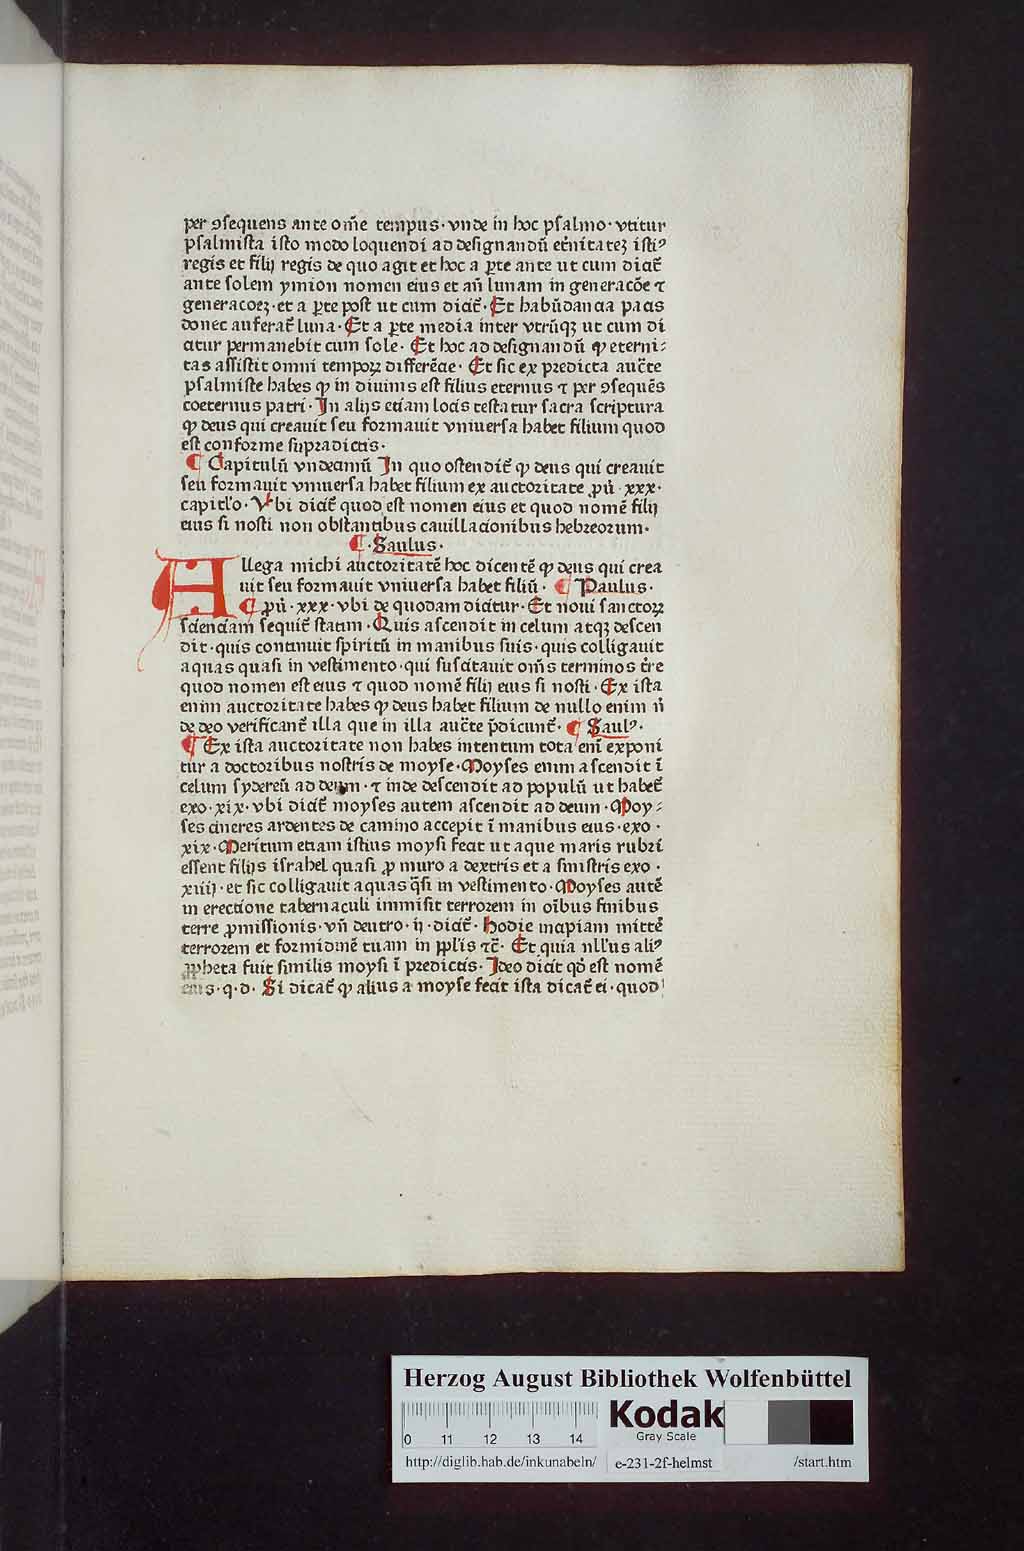 per ꝯsequens ante om̄e tempus · vnde in hoc psalmo · vtitur
psalmista isto modo loquendi ad designandū et̄nitateȝ istiꝰ
regis et filij regis de quo agit et hoc a ꝑte ante ut cum dicit̄
ante solem ymion nomen eius et an̄ lunam in generacōe ⁊
generacoeȝ · et a ꝑte post ut cum dicit̄ · Et habūdancia pacis
donec auferat̄ luna · Et a ꝑte media inter vtrūqȝ ut cum di
citur permanebit cum sole · Et hoc ad designandū ꝙ eterni⸗
tas assistit omni tempoꝝ differēcie · Et sic ex predicta auc̄te
psalmiste habes ꝙ in diuinis est filius eternus ⁊ per ꝯsequēs
coeternus patri · In alijs etiam locis testatur sacra scriptura
ꝙ deus qui creauit seu formauit vniuersa habet filium quod
est conforme supradictis ·
¶ Capitulū vndecimū In quo ostendit̄ ꝙ deus qui creauit
seu formauit vniuersa habet filium ex auctoritate ꝓū · xxx ·
capitl̓o · Vbi dicit̄ quod est nomen eius et quod nomē filij
eius si nosti non obstantibus cauillacionibus hebreorum ·
¶ · Saulus ·
Allega michi auctoritatē hoc dicentē ꝙ deus qui crea
uit seu formauit vniuersa habet filiū · ¶ Paulus ·
¶ ꝓū · xxx · vbi de quodam dicitur · Et noui sanctoꝝ
scienciam sequit̄ statim · Quis ascendit in celum atqȝ descen
dit · quis continuit spiritū in manibus suis · quis colligauit
aquas quasi in vestimento · qui suscitauit om̄s terminos t̄re
quod nomen est eius ⁊ quod nomē filij eius si nosti · Ex ista
enim auctoritate habes ꝙ deus habet filium de nullo enim n̄
de deo verificant̄ illa que in illa auc̄te p̄dicunt̄ · ¶ Saulꝰ ·
¶ Ex ista auctoritate non habes intentum tota enī exponi
tur a doctoribus nostris de moyse · Moyses enim ascendit ī
celum sydereū ad deum · ⁊ inde descendit ad populū ut habet̄
exo · xix · vbi dicit̄ moyses autem ascendit ad deum · Moy⸗
ses cineres ardentes de camino accepit ī manibus eius · exo ·
xix · Meritum etiam istius moysi fecit ut aque maris rubri
essent filijs israhel quasi ꝓ muro a dextris et a sinistris exo ·
xiiij · et sic colligauit aquas q̄si in vestimento · Moyses autē
in erectione tabernaculi immisit terrorem in oībus finibus
terre ꝓmissionis · vn̄ deutro · ij · dicit̄ · Hodie incipiam mittē
terrorem et formidinē tuam in pp̄lis ⁊c̄ · Et quia nll'us aliꝰ
ꝓpheta fuit similis moysi ī predictis · Ideo dicit qd̄ est nomē
eius · q · d · Si dicat̄ ꝙ alius a moyse fecit ista dicat̄ ei · quod
Herzog August Bibliothek Wolfenbüttel
0 11 12 13 14
Kodak
Gray Scale
http://diglib.hab.de/inkunabeln/ e-231-2f-helmst /start.htm